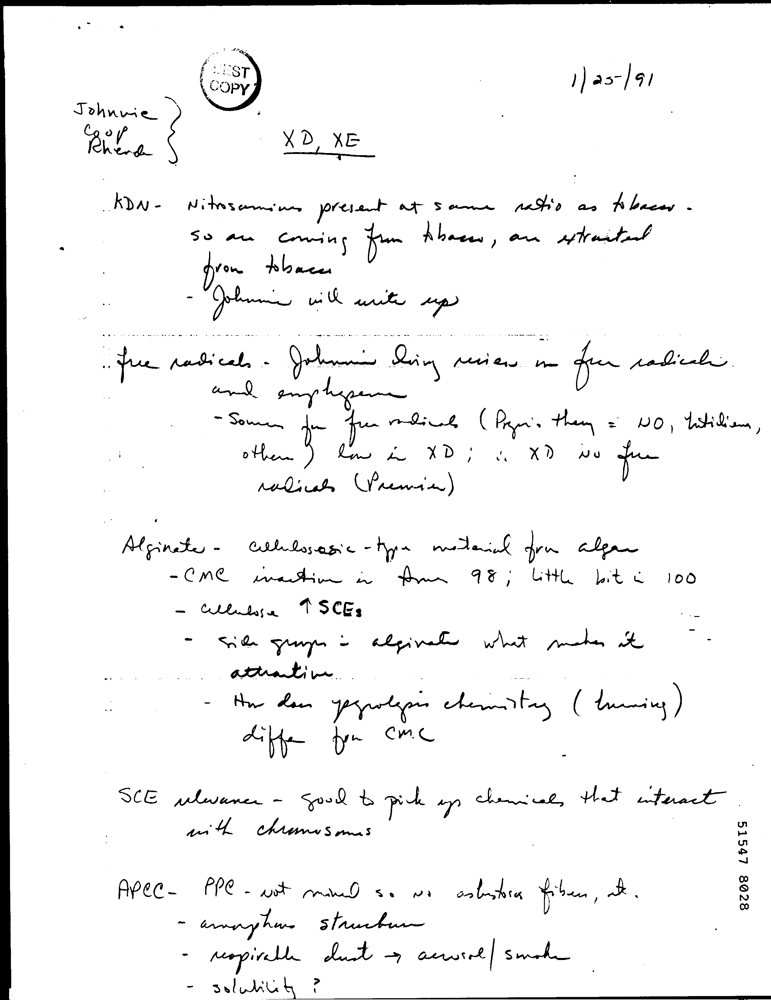 1/25/91
BEST
COPY
Johnnie
Coop
Rhenda
XD, XE
KDN - Nitrosamines present at same ratio as tobacco -
so are coming from tobacco, are extracted
from tobacco
- Johnnie will write up
free radicals - Johnnie doing review on free radicals
and emphysema
- Sources for free radicals (Pryor's theory = NO,
others) low in XD; ∴ XD no free
radicals (Premier)
Alginates - cellulosic-type material from algae
- CMC inactive in Ames 98; little bit in 100
- cellulose ↑ SCEs
- side groups in alginate what makes it
attractive
- How does pyrolysis chemistry (burning)
differ from CMC
SCE relevance - good to pick up chemicals that interact
with chromosomes
APCC - PPC - not mined so no asbestos fibers, etc.
- amorphous structure
- respirable dust → aerosol/smoke
- solubility ?
51547 8028